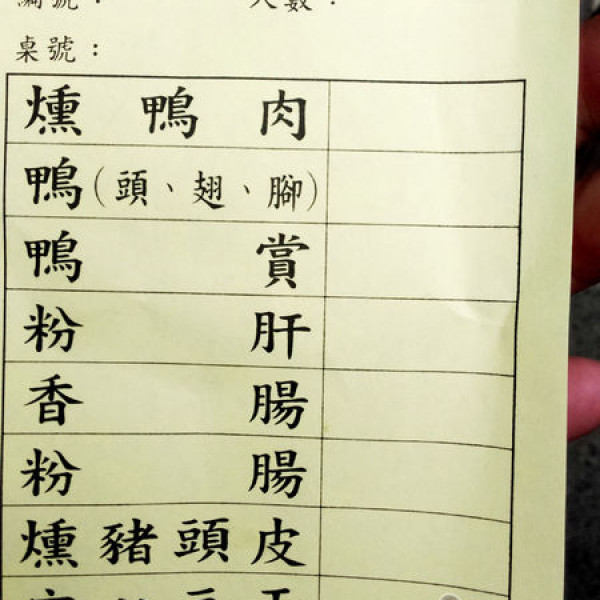 編號： 人數：
桌號：
燻鴨肉
鴨（頭、翅、腳）
鴨賞
粉肝
香腸
粉腸
燻豬頭皮